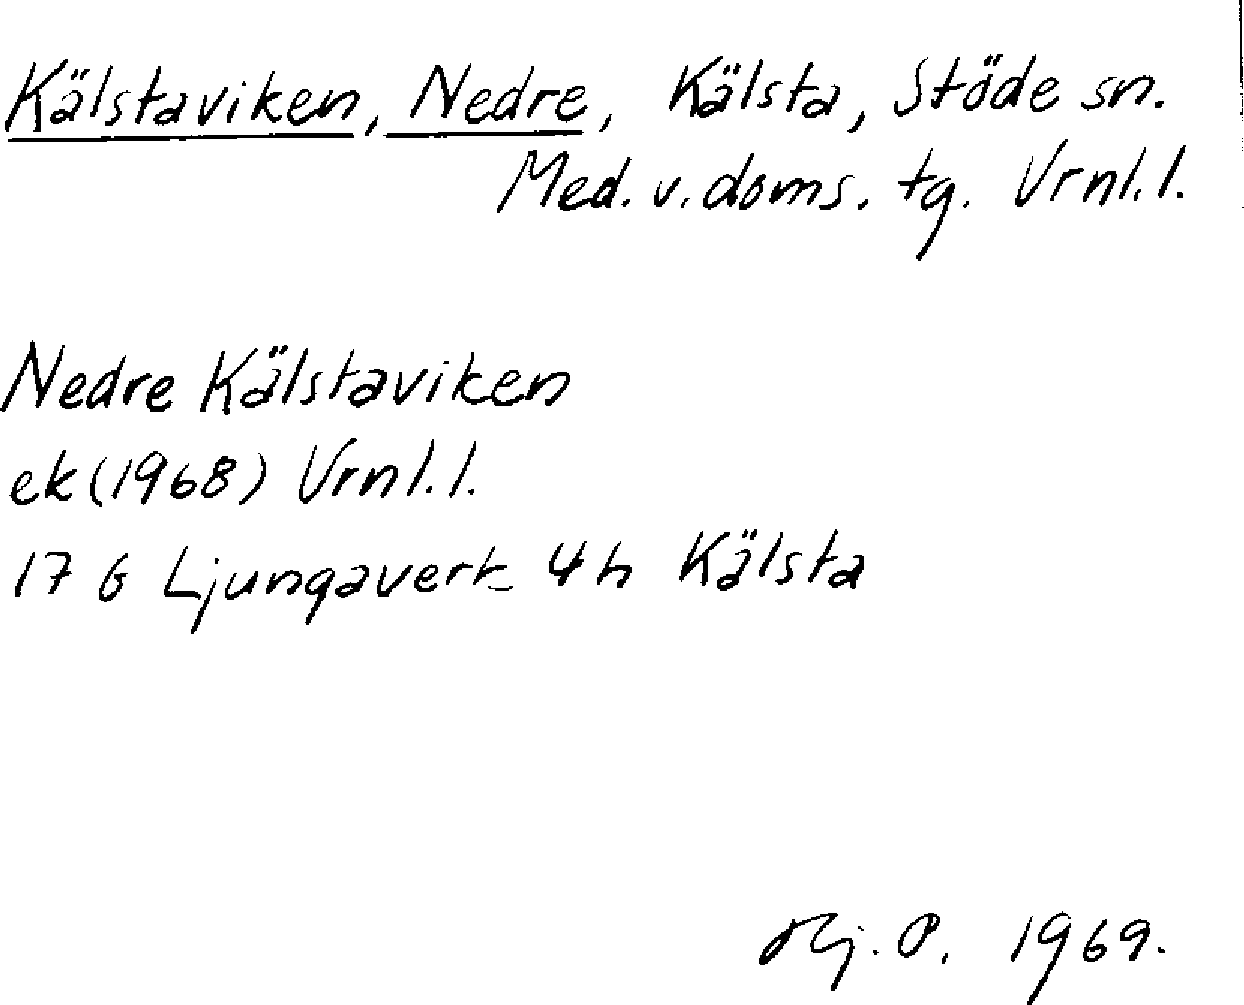 Kälstaviken, Nedre, Kälsta, Stöde sn.
Med. v. doms. tg. Vrnl. l.
Nedre Kälstaviken
ek (1968) Vrnl. l.
17 G Ljungaverk 4 h Kälsta
Hj. P. 1969.